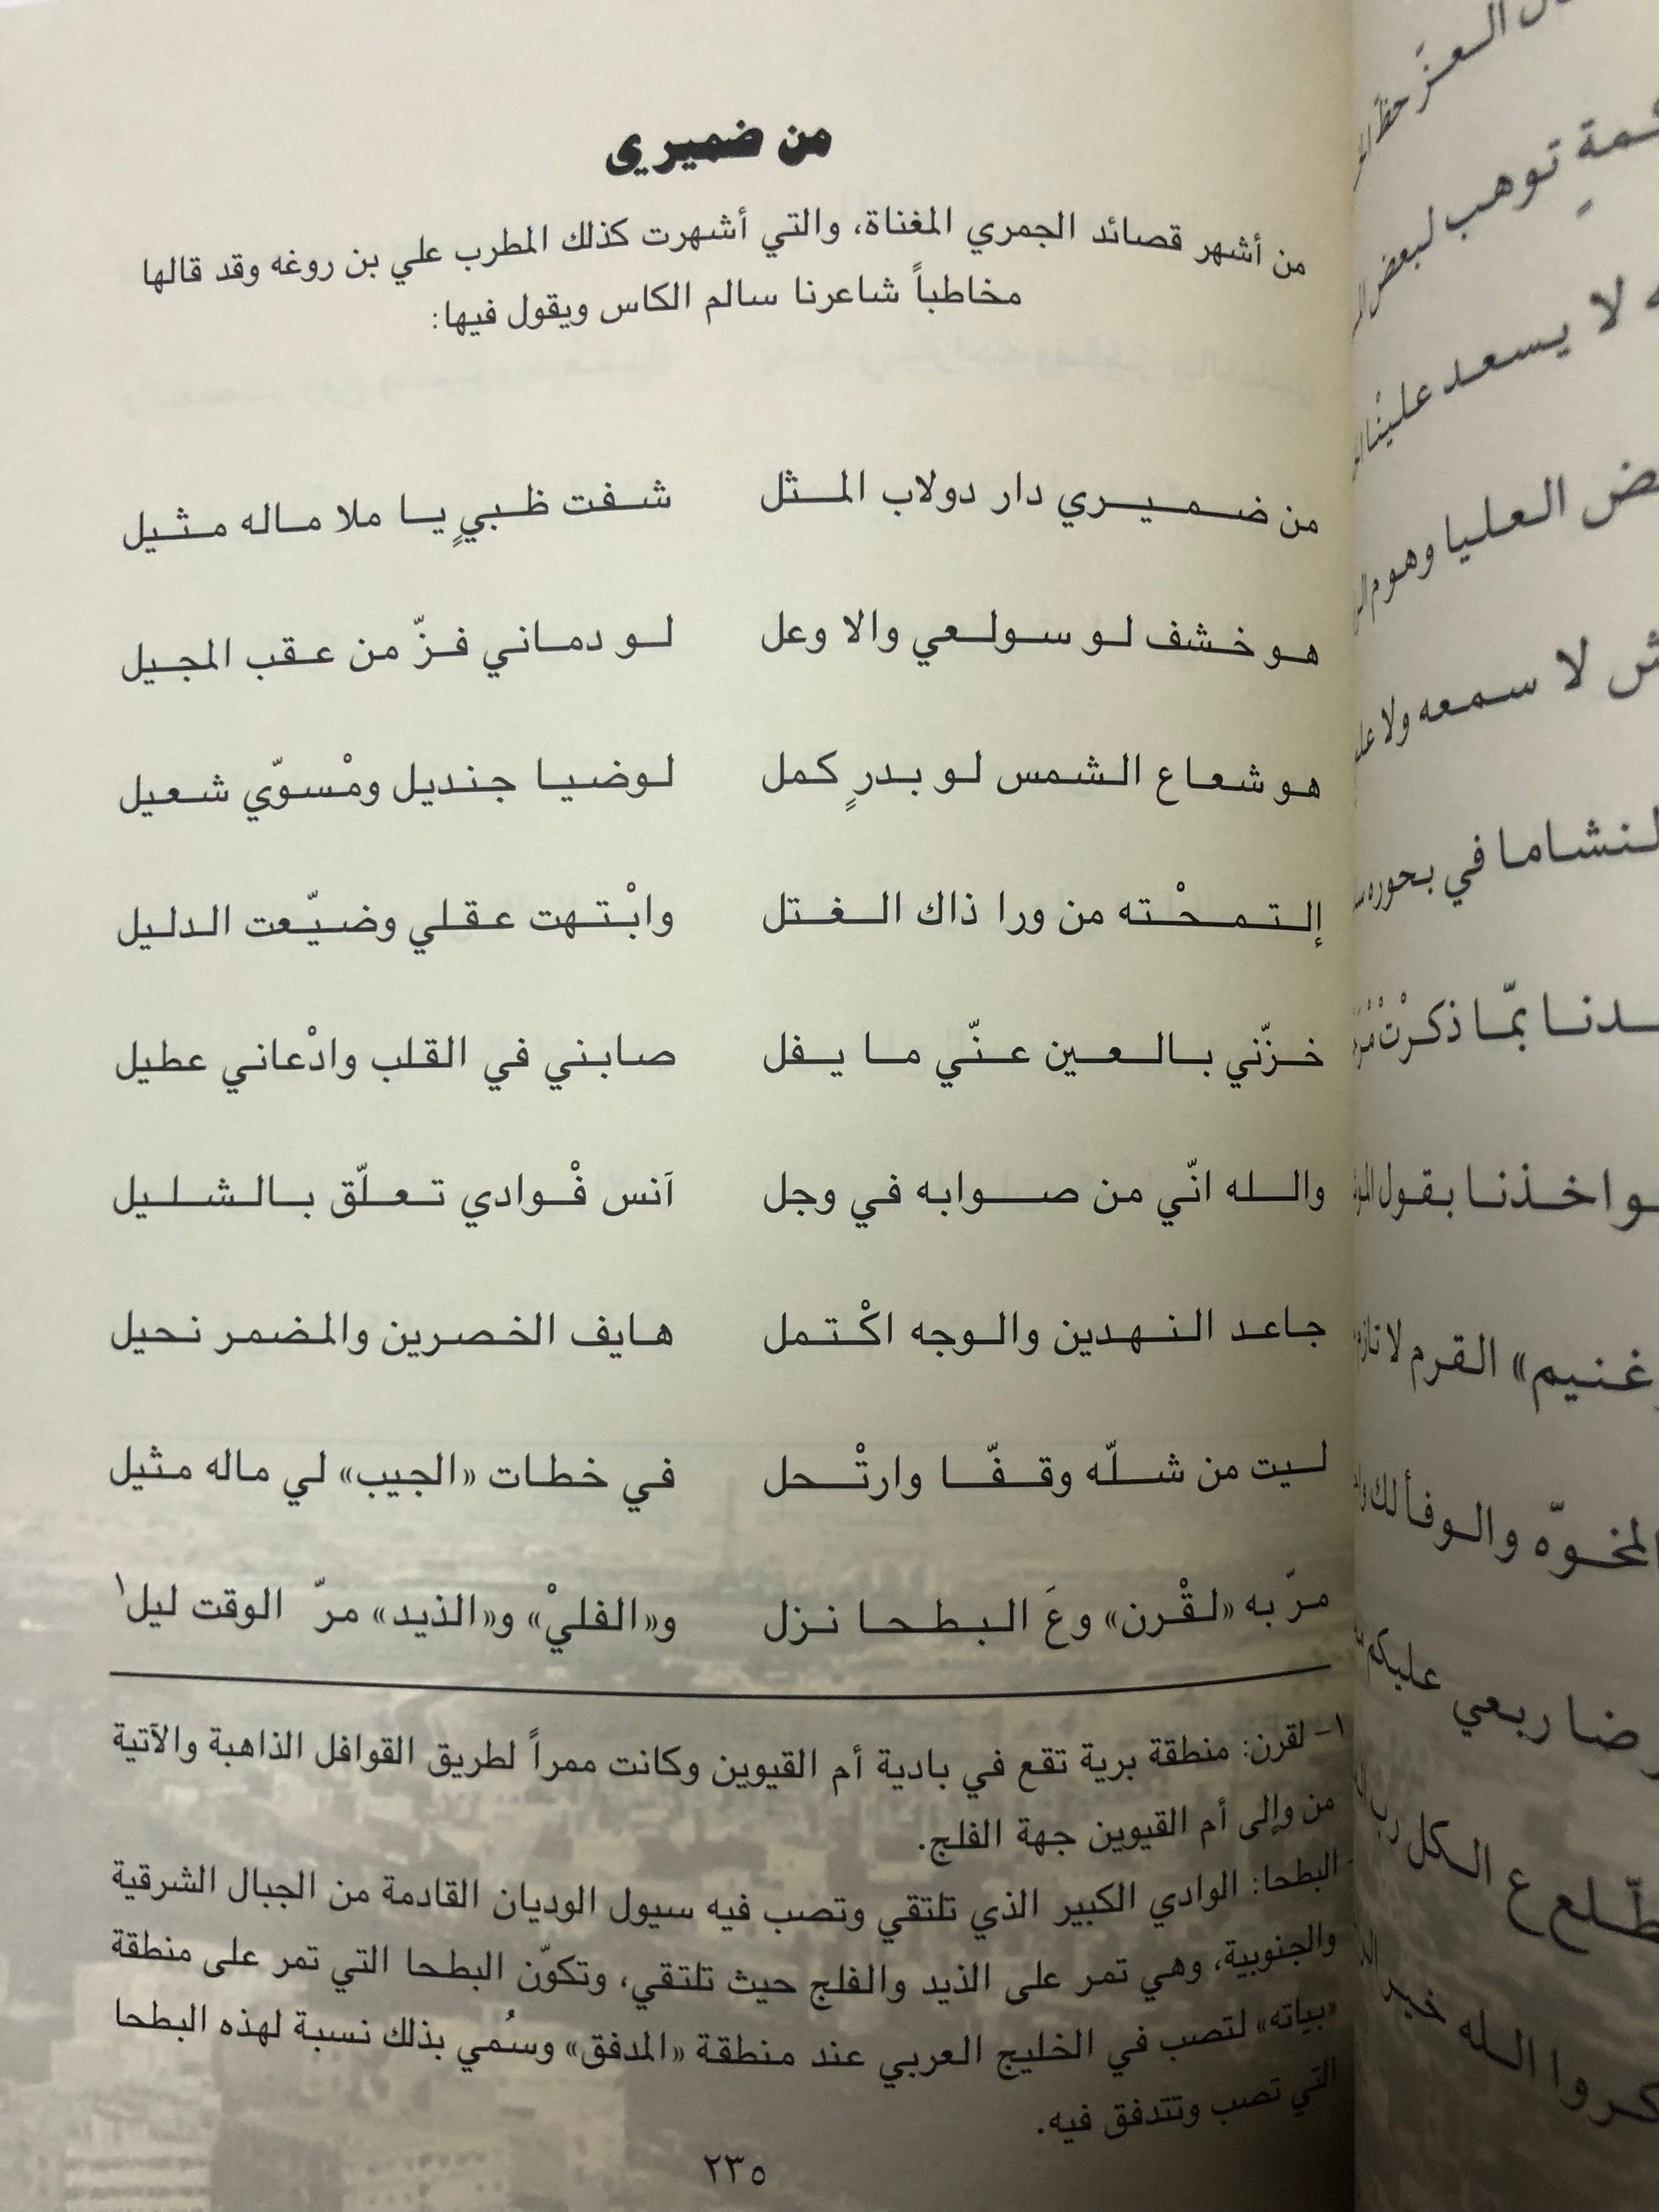 من ضميري
من أشهر قصائد الجمري المغناة، والتي أشهرت كذلك المطرب علي بن روغه وقد قالها
مخاطباً شاعرنا سالم الكاس ويقول فيها:
من ضميري دار دولاب المثل شفت ظبيٍ يا ملا ماله مثيل
هو خشف لو سولعي والا وعل لو دماني فزّ من عقب المجيل
هو شعاع الشمس لو بدرٍ كمل لوضيا جنديل ومْسوّي شعيل
إلتمحْته من ورا ذاك الغتل وابْتهت عقلي وضيّعت الدليل
خزّني بالعين عنّي ما يفل صابني في القلب وادْعاني عطيل
والله انّي من صوابه في وجل آنس فْوادي تعلّق بالشليل
جاعد النهدين والوجه اكْتمل هايف الخصرين والمضمر نحيل
ليت من شلّه وقفّا وارتْحل في خطات «الجيب» لي ماله مثيل
مرّ به «لقْرن» وعَ البطحا نزل و«الفليْ» و«الذيد» مرّ الوقت ليل١
١- لقرن: منطقة برية تقع في بادية أم القيوين وكانت ممراً لطريق القوافل الذاهبة والآتية
من وإلى أم القيوين جهة الفلج.
- البطحا: الوادي الكبير الذي تلتقي وتصب فيه سيول الوديان القادمة من الجبال الشرقية
والجنوبية، وهي تمر على الذيد والفلج حيث تلتقي، وتكوّن البطحا التي تمر على منطقة
«بياته» لتصب في الخليج العربي عند منطقة «المدفق» وسُمي بذلك نسبة لهذه البطحا
التي تصب وتتدفق فيه.
٢٣٥
العزّ حظ
توهب لبعض
لا يسعد علينا
العليا وهوم
لا سمعه ولا
في بحوره
بمّا ذكرْت
بقول
غنيم» القرم لا
والوفا لك
ربعي عليكم
ع الكل رب
الله خير